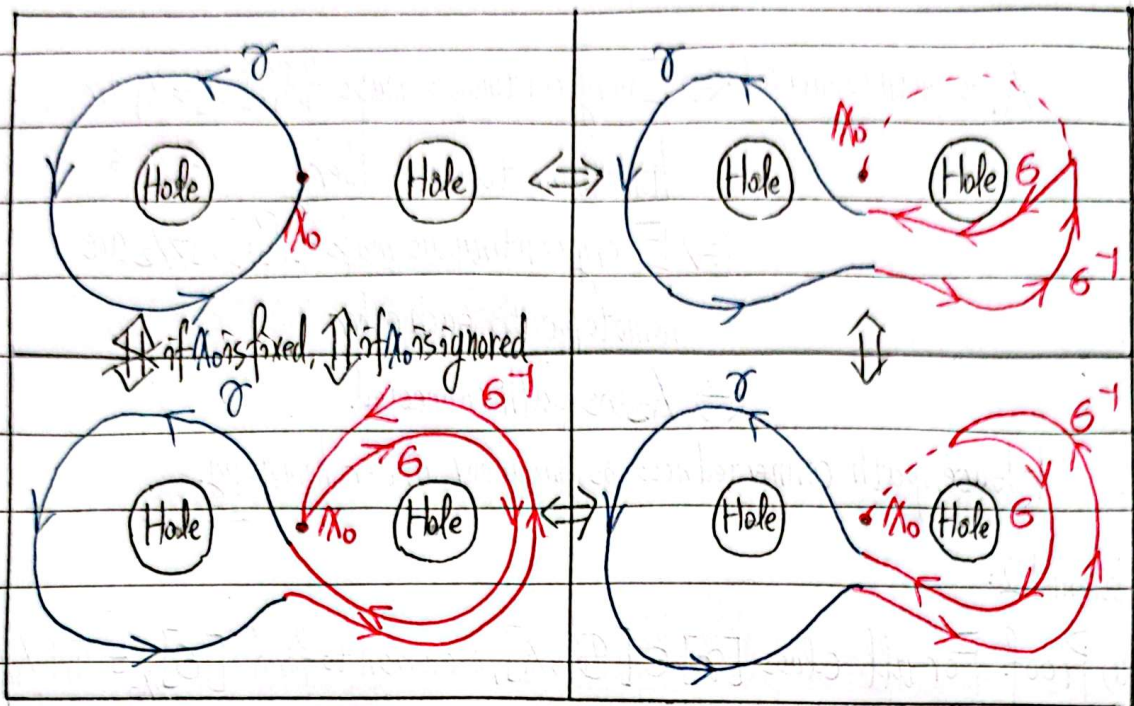 γ
Hole Hole
x₀
⟺
γ
x₀
Hole Hole
σ
σ⁻¹
if x₀ is fixed, ⇕ if x₀ is ignored
⇕
γ
σ⁻¹
σ
Hole x₀ Hole
⟺
γ
σ⁻¹
Hole x₀ Hole σ